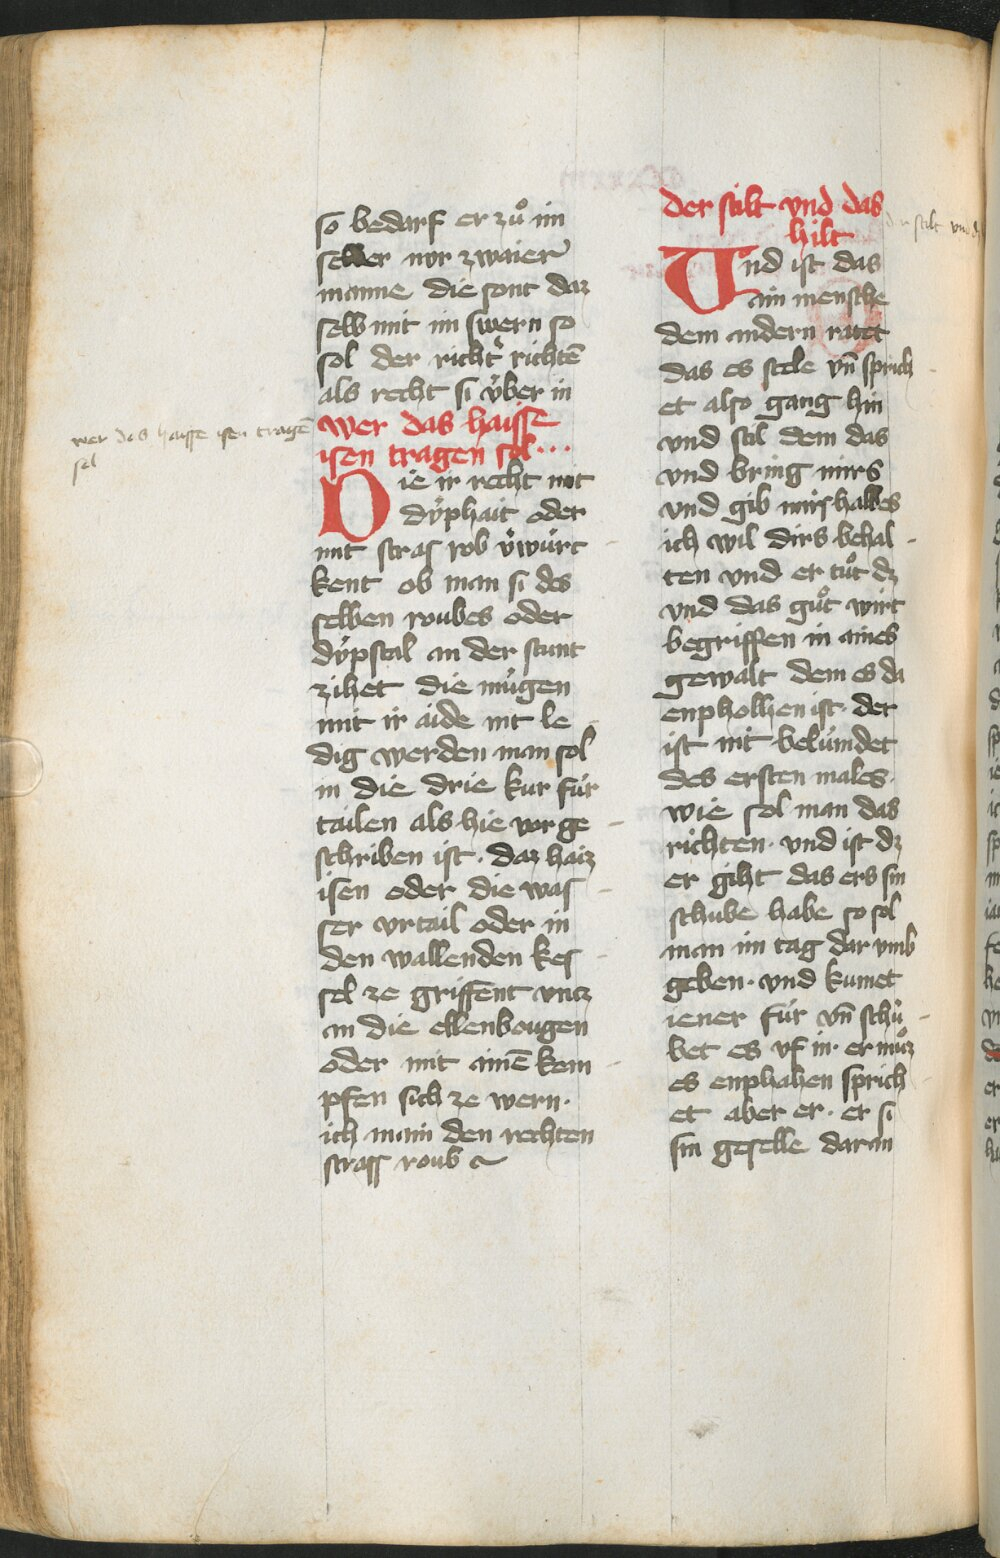 so bedarf er zuͦ im
selber nor zwaier
manne die sont daz
selb mit im swern so
sol der richt' richtē
als recht si v̈ber in
wer das haisse
isen tragen sol...
wer das haisse isen tragē
sol
Die ir recht mit
dÿphait oder
mit stras rob v̈wúrt
kent ob man si des
selben roubes oder
dÿpstal an der stunt
zihet die múgen
mit ir aide nit le
dig werden man sol
in die drie kur fúr
tailen als hie vor ge
schriben ist · daz haiz
isen oder die was
ser vrtail oder in
den wallenden kes
sel ze griffent vntz
an die ellenbougen
oder mit ainē kem
pfen sich ze wern·
ich main den rechten
strass roub
der stilt vnd das
hilt
der stilt vnd d
Vnd ist das
ain mensche
dem andern ratet
das es stele vn̄ sprich
et also gang hin
vnd stil dem das
vnd bring mirs
vnd gib mirs halbes
ich wil dirs behal
ten vnd er tuͦt dz
vnd das guͦt wirt
begriffen in aines
gewalt dem es da
enpholhen ist· der
ist nit belúmdet
des ersten males·
wie sol man das
richten· vnd ist dz
er giht das ers sin
schube habe so sol
man im tag dar vmb
geben· vnd kumet
iener fúr vn̄ schuͦ
bet es vf in· er muͦz
es enphahen sprich
et aber er· er si
sin geselle daran